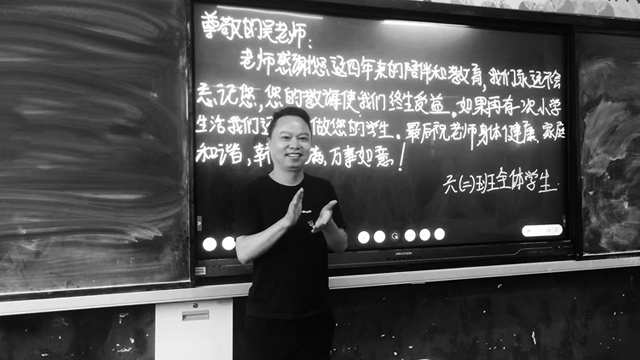 尊敬的吴老师：
老师感谢您这四年来的陪伴和教育，我们永远不会
忘记您，您的教诲使我们终生受益。如果再有一次小学
生活我们还 做您的学生。最后祝老师身体健康、家庭
和谐， 满，万事如意！
六(二)班全体学生